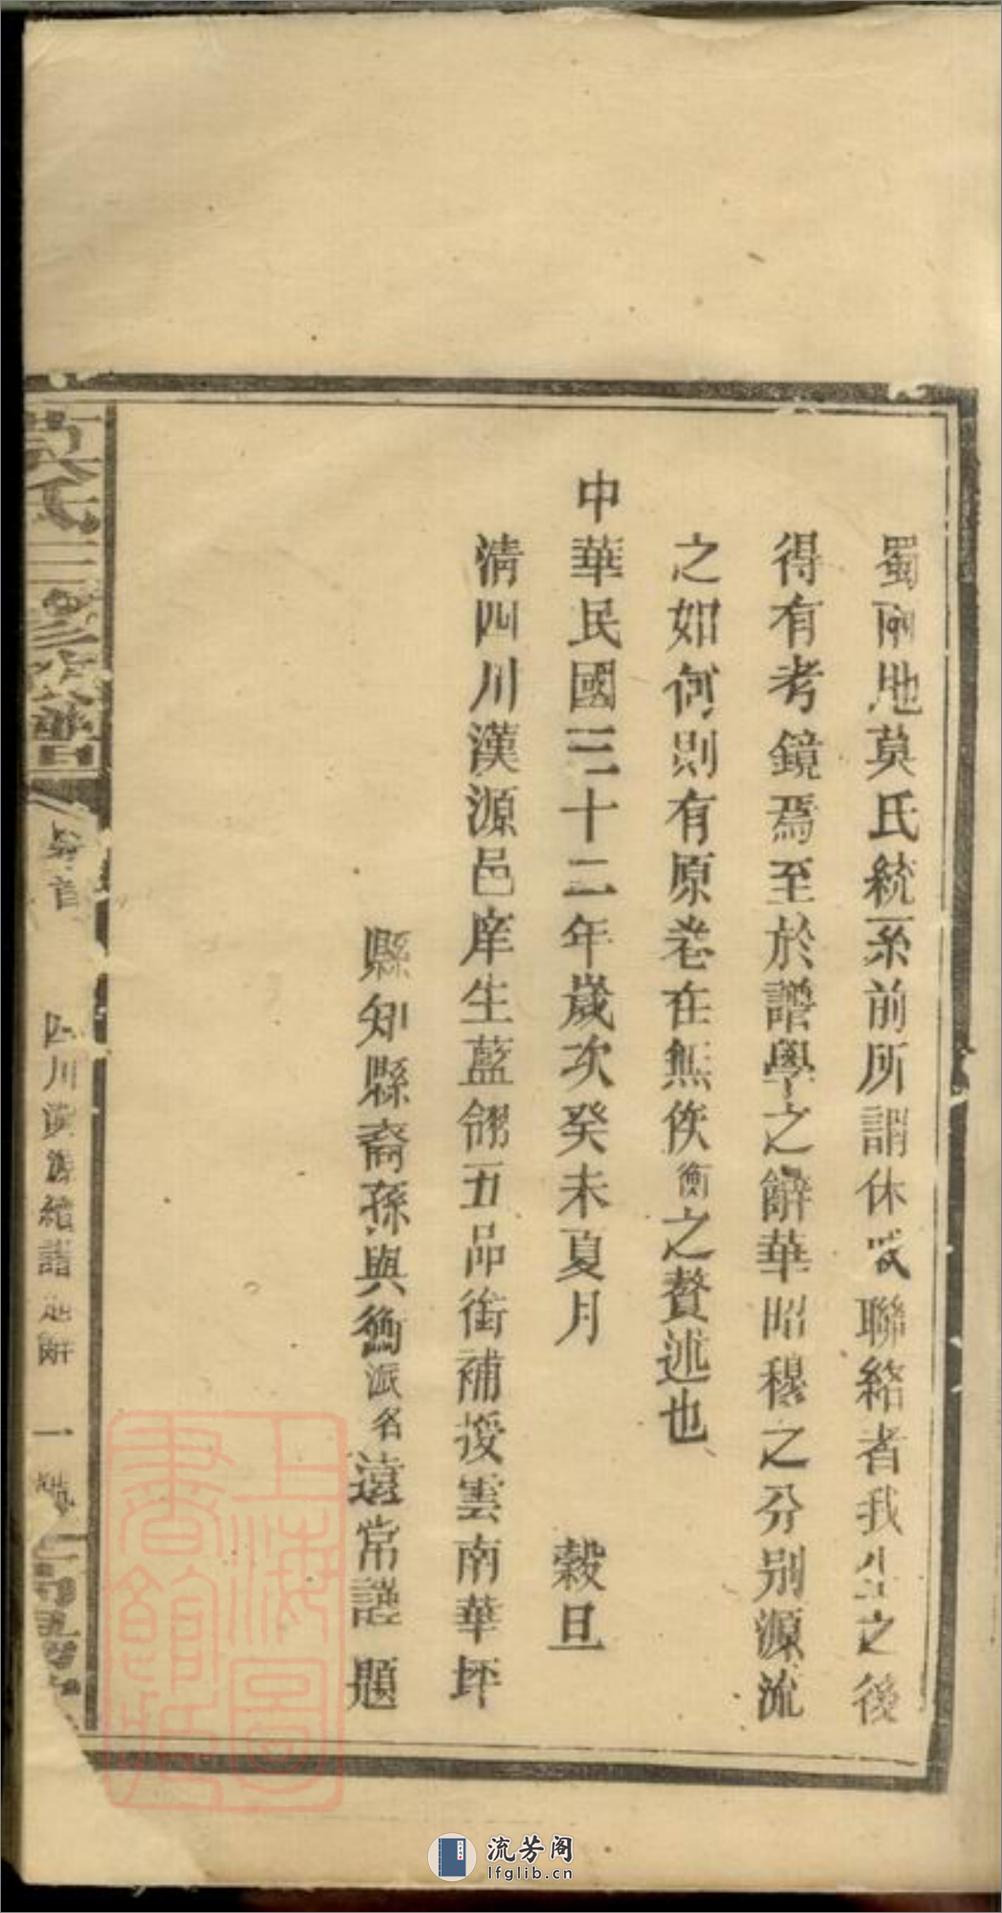 蜀兩地莫氏統系前所謂休戚聯絡者我公之後
得有考鏡焉至於譜學之辭華昭穆之分別源流
之如何則有原卷在無俟衡之贅述也
中華民國三十二年歲次癸未夏月 穀旦
清四川漢源邑庠生藍翎五品銜補授雲南華坪
縣知縣裔孫與衡派名遠常謹題
莫氏三修族譜 卷首 四川漢源續譜 一
上海圖書館藏
流芳阁
lfglib.cn